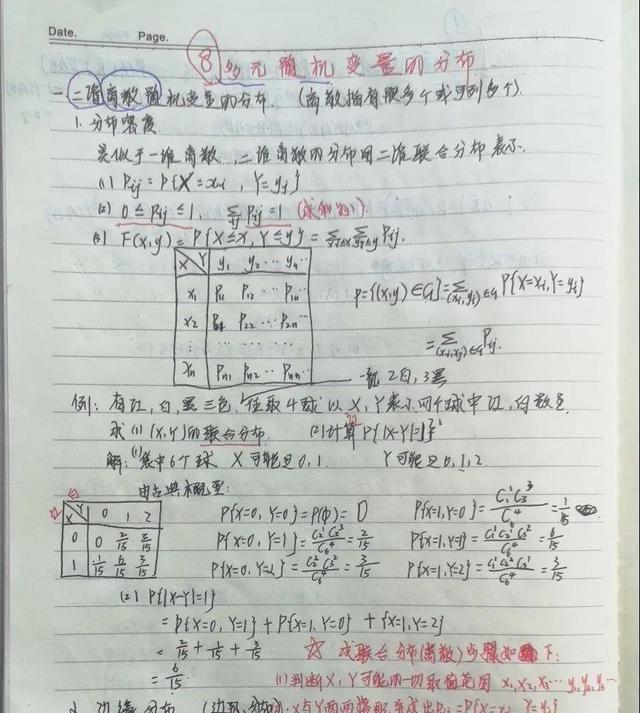 Date. Page.
8 多元随机变量的分布
一 二维离散随机变量的分布. (离散指有限多个或可列多个).
1. 分布密度.
类似于一维离散,二维离散的分布用二维联合分布表示.
(1) Pij = P{X=xi , Y=yj}
(2) 0≤Pij≤1, Σij Pij=1 (求和为1).
(3) F(x,y) = P{X≤x, Y≤y} = Σxi≤x Σyj≤y Pij.
X Y y1 y2 … yn …
x1 P11 P12 … P1n …
x2 P22 … P2n …
xn Pn1 Pn2 … Pnn …
P={(x,y)∈G}=Σ(xi,yj)∈G P{X=xi,Y=yj}
=Σ(xi,xj)∈G Pij.
一红 2白,3黑
例: 有红,白,黑三色.任取4球以X,Y表示四个球中红,白数量.
求(1) (X,Y)的联合分布. (2)计算P{|X-Y|=1}
解: (1) 袋中6个球 X可能只0,1. Y可能只0,1,2.
由古典概型:
红 白
X Y 0 1 2
0 0 2/15 3/15
1 1/15 6/15 3/15
P{X=0,Y=0}=P(Φ)=0 P{X=1,Y=0}=C₁¹C₃³/C₆⁴=1/15
P{X=0,Y=1}=C₂¹C₃³/C₆⁴=2/15 P{X=1,Y=1}=C₁¹C₂¹C₃²/C₆⁴=6/15
P{X=0,Y=2}=C₂²C₃²/C₆⁴=3/15 P{X=1,Y=2}=C₁¹C₂²C₃¹/C₆⁴=3/15
(2) P{|X-Y|=1}
= P{X=0,Y=1}+P{X=1,Y=0} + {X=1,Y=2}
= 2/15 + 1/15 + 3/15
= 6/15
☆ 求联合分布(离散)步骤如下:
(1) 判断X,Y可能的一切取值范围 x1,x2,x3… y1,y2,y3…
X与Y两两搭配,